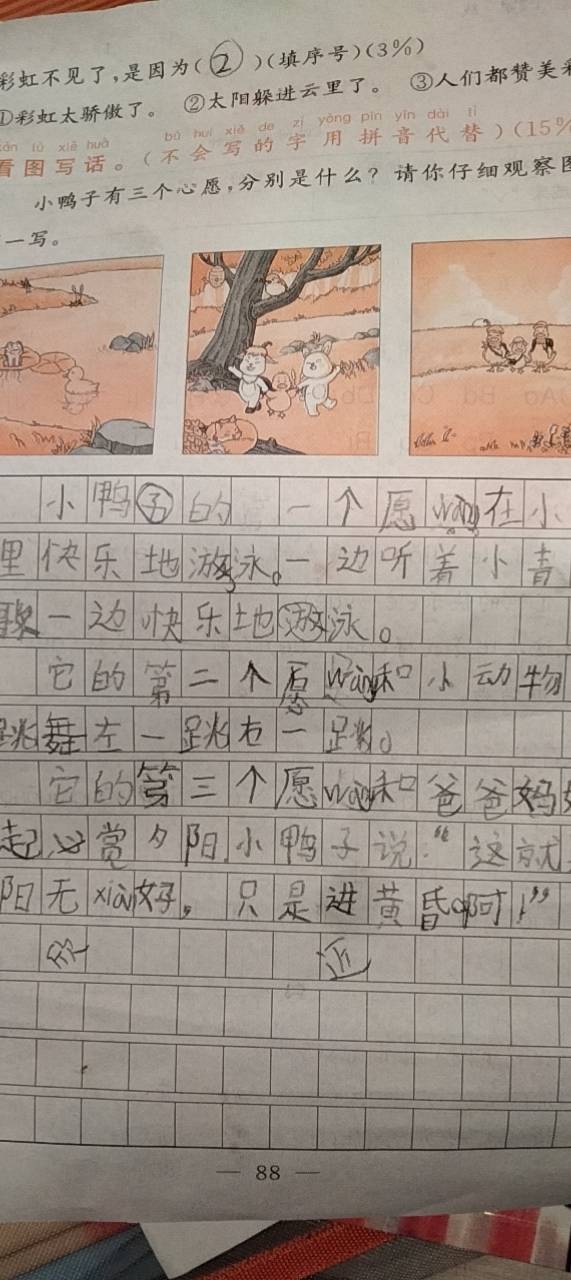 彩虹不见了,是因为(②)(填序号)(3%)
①彩虹太骄傲了。 ②太阳躲进云里了。 ③人们都赞美
kàn tú xiě huà bù huì xiě de zì yòng pīn yīn dài tì
看图写话。(不会写的字用拼音代替)(15%
小鸭子有三个心愿,分别是什么?请你仔细观察图
一写。
小鸭子的 一个愿wàng在小
里快乐地游泳。一边听着小青
歌一边快乐地游泳。
它的第二个愿wàng和小动物
跳舞左一跳右一跳。
它的第三个愿wàng和爸爸妈妈
起心赏夕阳,小鸭子说:“这就
阳无xiàn好,只是进黄昏啊!”
近
— 88 —